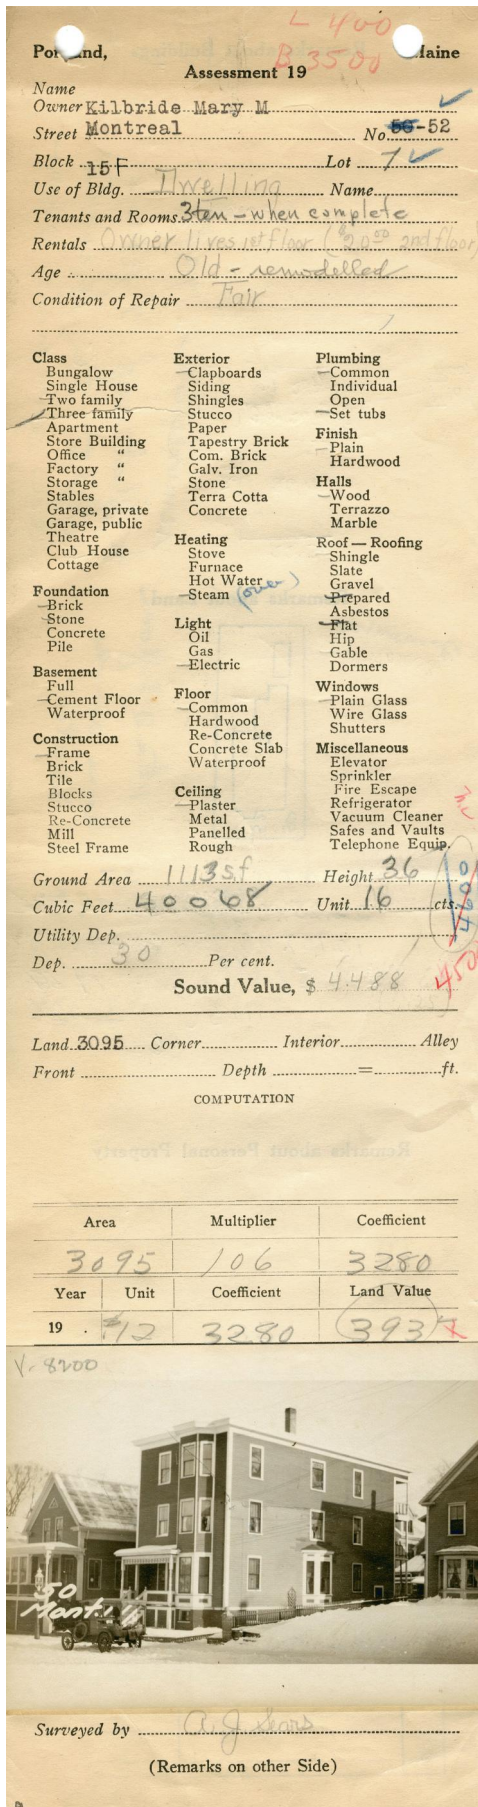 L 400
B 3500
Portland, Maine
Assessment 19
Name
Owner Kilbride Mary M
Street Montreal No. 50-52
Block 15F Lot 7
Use of Bldg. Dwelling Name
Tenants and Rooms 3 ten - when complete
Rentals Owner lives 1st floor ($20.00 2nd floor)
Age Old - remodelled
Condition of Repair Fair
Class
Bungalow
Single House
Two family
Three family
Apartment
Store Building
Office "
Factory "
Storage "
Stables
Garage, private
Garage, public
Theatre
Club House
Cottage
Foundation
Brick
Stone
Concrete
Pile
Basement
Full
Cement Floor
Waterproof
Construction
Frame
Brick
Tile
Blocks
Stucco
Re-Concrete
Mill
Steel Frame
Exterior
Clapboards
Siding
Shingles
Stucco
Paper
Tapestry Brick
Com. Brick
Galv. Iron
Stone
Terra Cotta
Concrete
Heating
Stove
Furnace
Hot Water
Steam (over)
Light
Oil
Gas
Electric
Floor
Common
Hardwood
Re-Concrete
Concrete Slab
Waterproof
Ceiling
Plaster
Metal
Panelled
Rough
Plumbing
Common
Individual
Open
Set tubs
Finish
Plain
Hardwood
Halls
Wood
Terrazzo
Marble
Roof — Roofing
Shingle
Slate
Gravel
Prepared
Asbestos
Flat
Hip
Gable
Dormers
Windows
Plain Glass
Wire Glass
Shutters
Miscellaneous
Elevator
Sprinkler
Fire Escape
Refrigerator
Vacuum Cleaner
Safes and Vaults
Telephone Equip.
Ground Area 1113 s.f. Height 36
Cubic Feet 40068 Unit 16 cts.
Utility Dep.
Dep. 30 Per cent.
Sound Value, $ 4488
Land 3095 Corner Interior Alley
Front Depth = ft.
COMPUTATION
Area Multiplier Coefficient
3095 106 3280
Year Unit Coefficient Land Value
19 . $12 3280 393
V. 8200
50
Mont.
Surveyed by A. J. Sears
(Remarks on other Side)